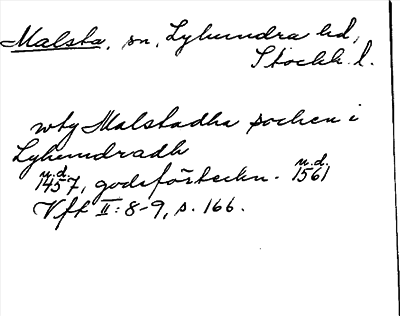 Malsta, sn, Lyhundra hd,
Stockh. l.
wty Malstadha sochen i
Lyhundradh
n.d. n.d.
1457, godsförteckn. 1561
Vft II: 8-9, s. 166.